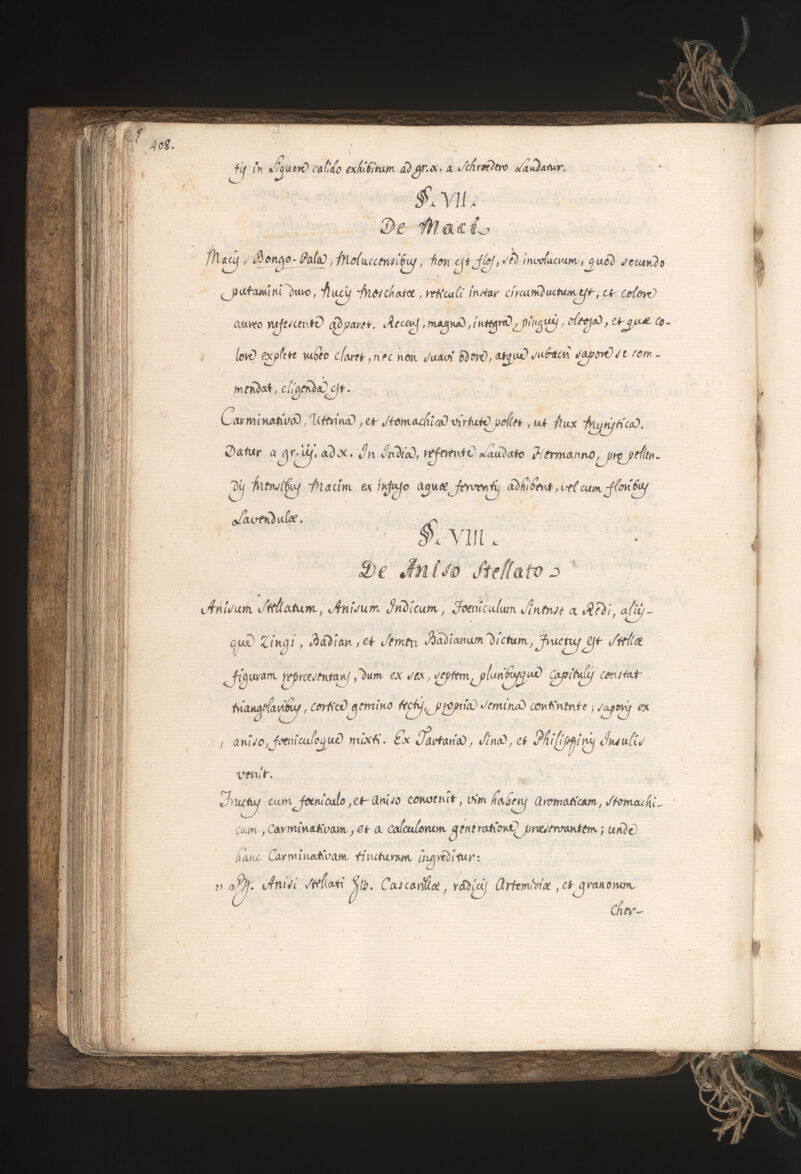 408.
tis in Liquore calido exhibitum ad gr. x. a Schroedero Laudatur.
§. VII.
De Maci
Macis, Bongo-Pala, Moluccensibus, non est flos, sed involucrum, quod secundo
putamini duro, Nucis Moschatæ, reticuli instar circumductum est, et colore
aureo rufescente adparet. Recens, magna, integra, pinguis, oleosa, et quæ co-
lore explete rubeo claret, nec non suavi odore, atque subacri sapore se com-
mendat, eligenda est.
Carminativa, Uterina, et Stomachica virtute pollet, ut Nux Myristica.
Datur a gr. iij. ad x. In India, referente Laudato Hermanno, pro pellen-
dis Mensibus Macim ex infuso aquæ ferventis adhibent, vel cum floribus
Lavendulæ.
§. VIII.
De Aniso Stellato
Anisum Stellatum, Anisum Indicum, Foeniculum Sinense a Redi, aliis-
que Zingi, Badian, et Semen Badianum dictum, Fructus est Stellæ
figuram repræsentans, dum ex sex, septem, pluribusque capitulis constat
triangularibus, cortice gemino tectis, propria semina continente; saporis ex
aniso, foeniculoque mixti. Ex Tartaria, Sina, et Philippinis Insulis
venit.
Fructus cum foeniculo, et aniso convenit, vim habens aromaticam, Stomachi-
cam, Carminativam, et a calculorum generatione præservantem; unde
hanc Carminativam tincturam ingreditur:
" ℞. Anisi Stellati Cascarillæ, radicis Artemisiæ, et granorum
Cher-